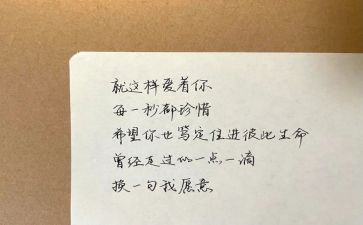 就这样爱着你
每一秒都珍惜
希望你也笃定住进彼此生命
曾经走过的一点一滴
换一句我愿意